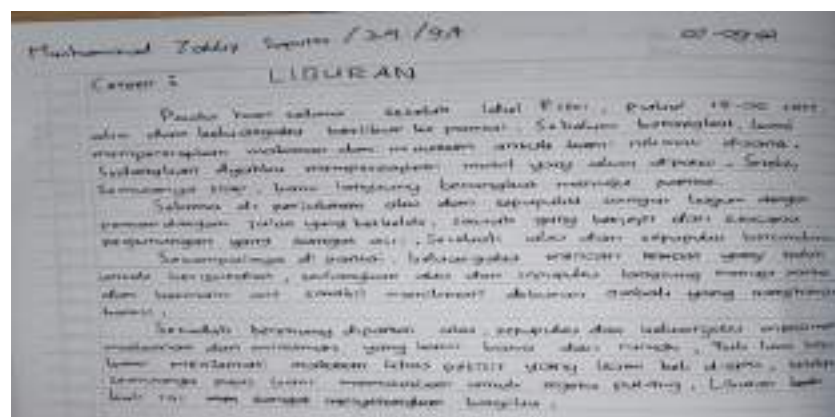 Muhammad Zakky Saputra / 29 / 9A
Cerpen : LIBURAN
Pada hari selasa setelah Idul Fitri, pukul
aku dan keluargaku berlibur ke pantai. Sebelum berangkat, kami
mempersiapkan makanan dan minuman untuk kami nikmati disana.
Sedangkan Ayahku mempersiapkan mobil yang akan dipakai.
Semuanya siap, kami langsung berangkat menuju pantai.
Selama di perjalanan aku dan sepupuku sangat kagum dengan
pemandangan jalan yang berkelok, sawah yang berjejer dan
pegunungan yang sangat asri. Sesekali aku dan sepupuku
Sesampainya di pantai, keluargaku mencari tempat yang
untuk beristirahat, sedangkan aku dan sepupuku langsung menuju pantai
dan bermain air sambil menikmati deburan ombak yang
Sesudah berenang dipantai aku, sepupuku dan keluargaku
makanan dan minuman, yang kami bawa dari rumah.
kami menikmati makanan khas pantai yang kami beli
kami memutuskan untuk segera pulang. Liburan
kali ini sangat menyenangkan bagiku.